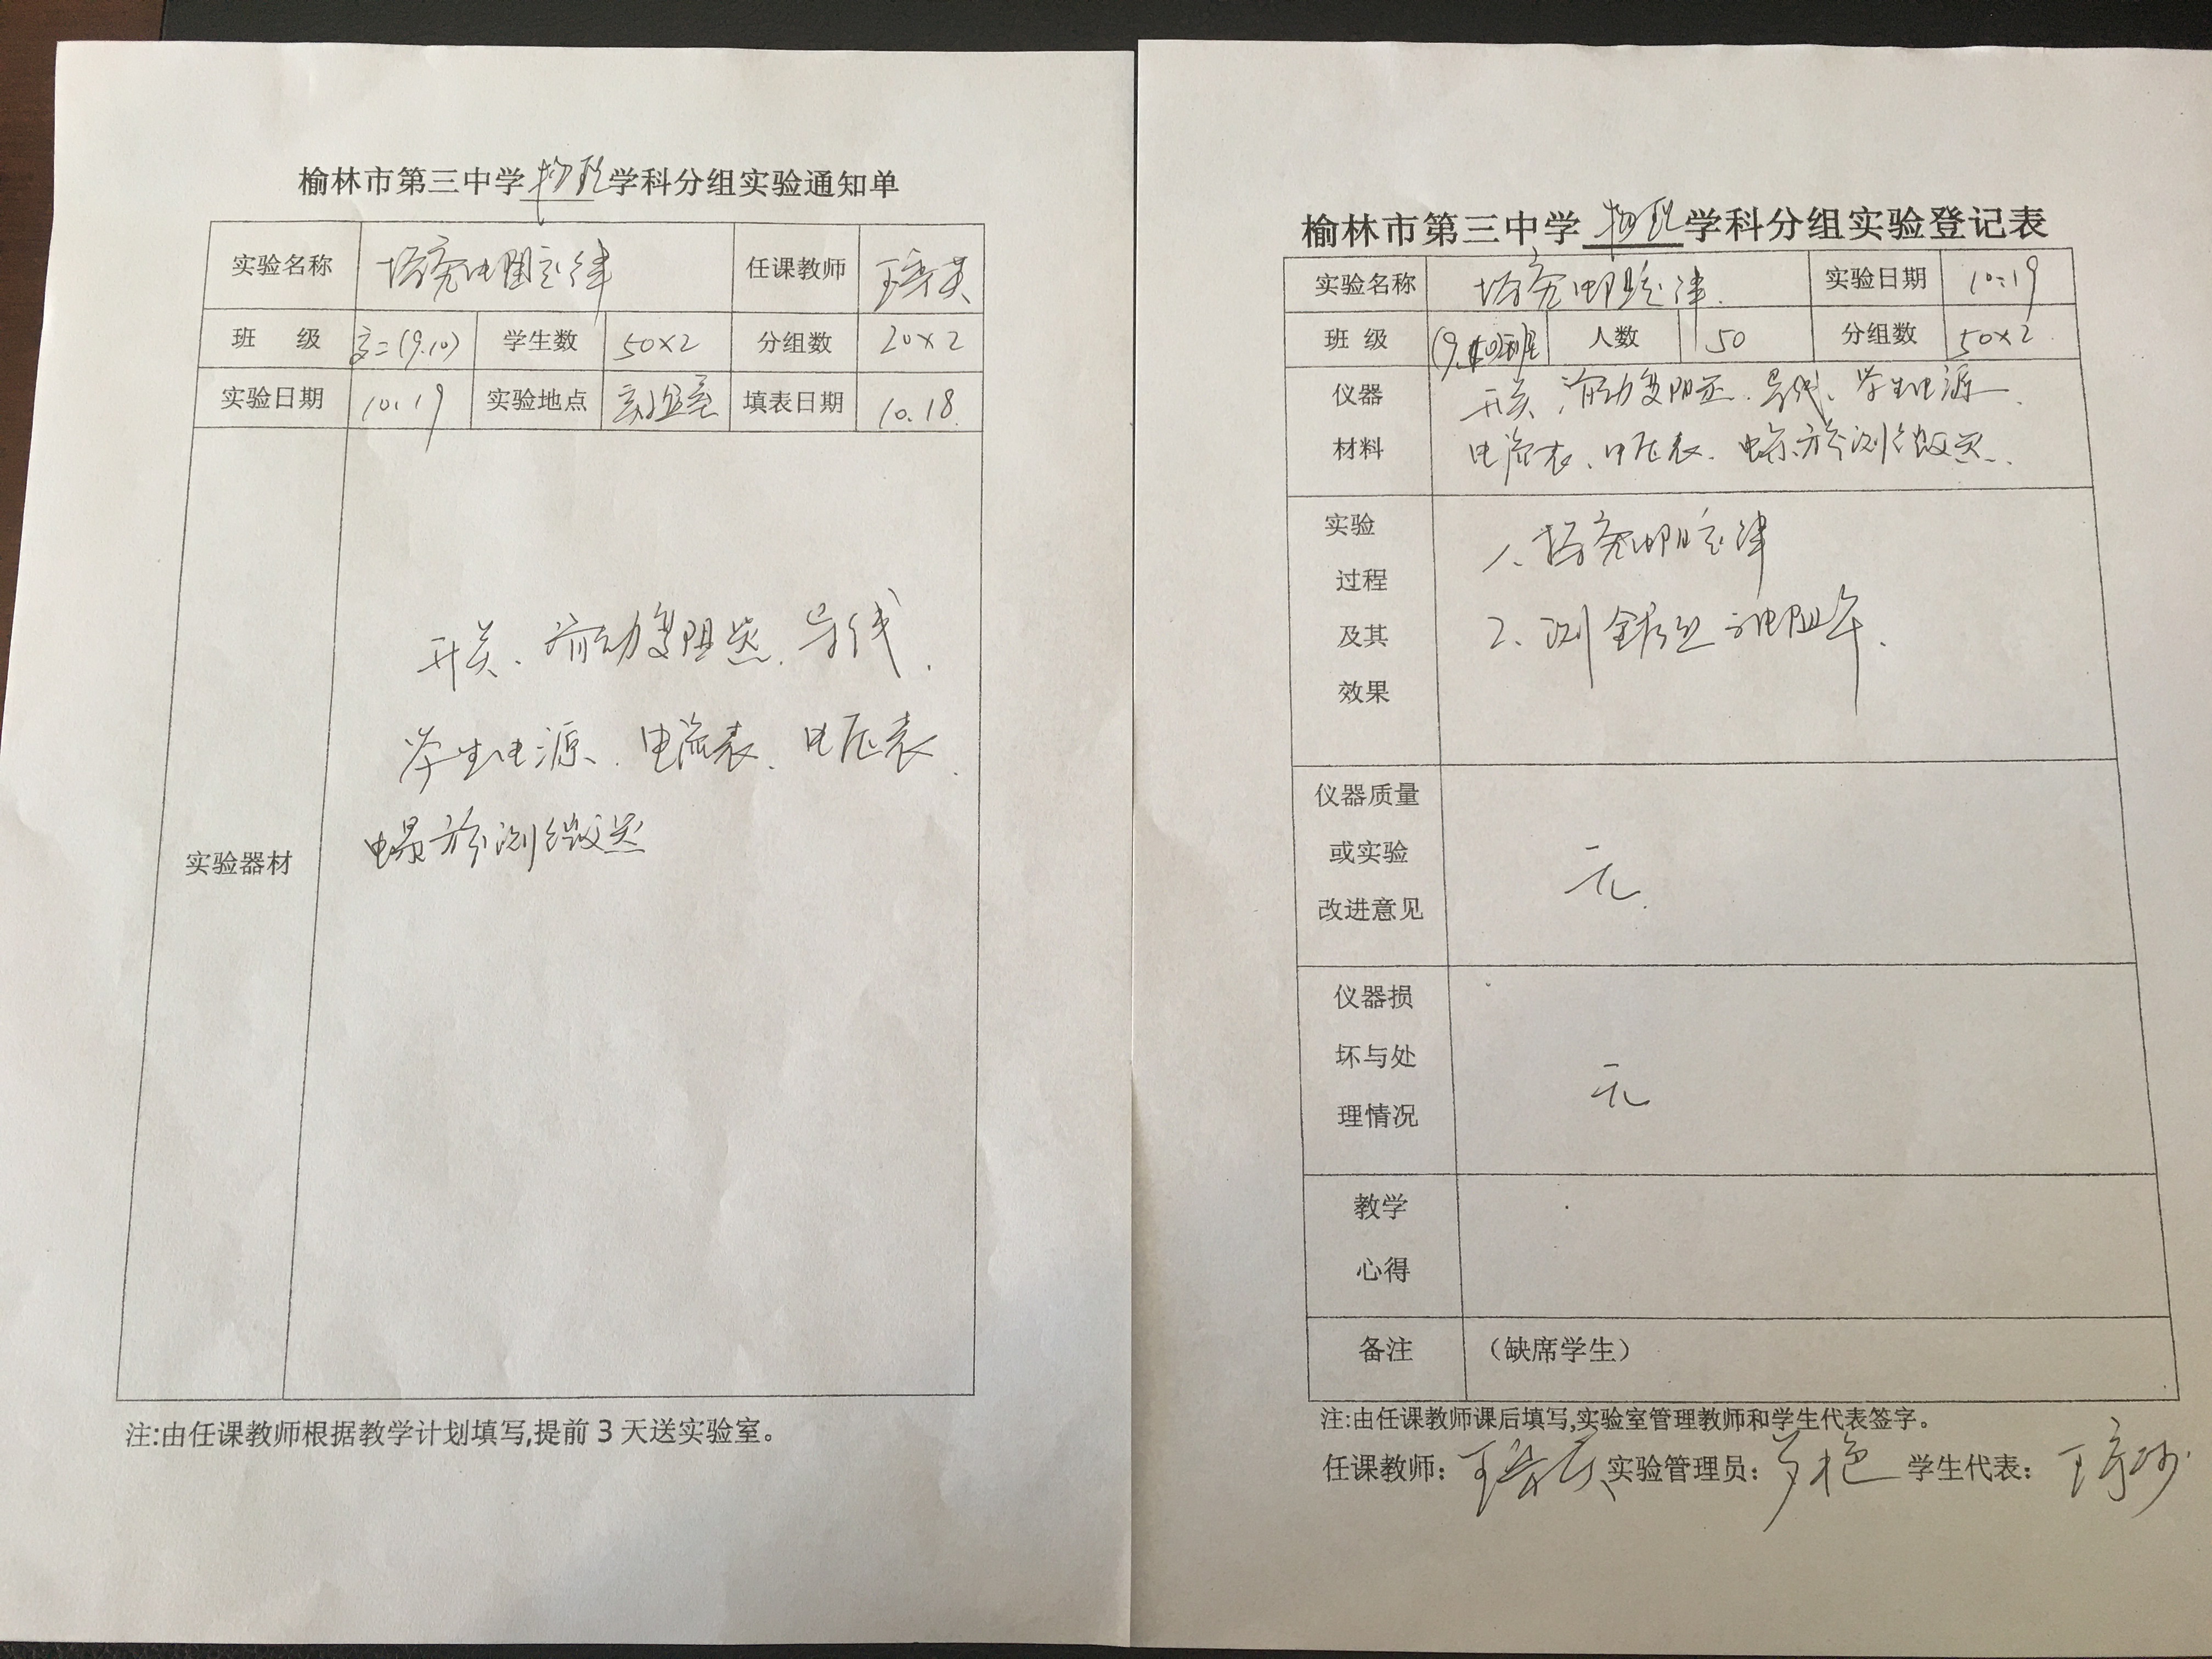 榆林市第三中学物理学科分组实验通知单
实验名称 探究电阻定律 任课教师
班 级 高二(9.10) 学生数 50×2 分组数 20×2
实验日期 10.19 实验地点 实验室 填表日期 10.18.
实验器材
开关、滑动变阻器、导线、
学生电源、电流表、电压表、
螺旋测微器
注:由任课教师根据教学计划填写,提前3天送实验室。
榆林市第三中学物理学科分组实验登记表
实验名称 探究电阻定律. 实验日期 10.19
班 级 人数 50 分组数 50×2
仪器
材料
开关、滑动变阻器、导线、学生电源、
电流表、电压表、螺旋测微器、
实验
过程
及其
效果
1、探究电阻定律
2、测金属丝的电阻率.
仪器质量
或实验
改进意见
无.
仪器损
坏与处
理情况
无
教学
心得
备注 (缺席学生)
注:由任课教师课后填写,实验室管理教师和学生代表签字。
任课教师: 实验管理员: 学生代表: